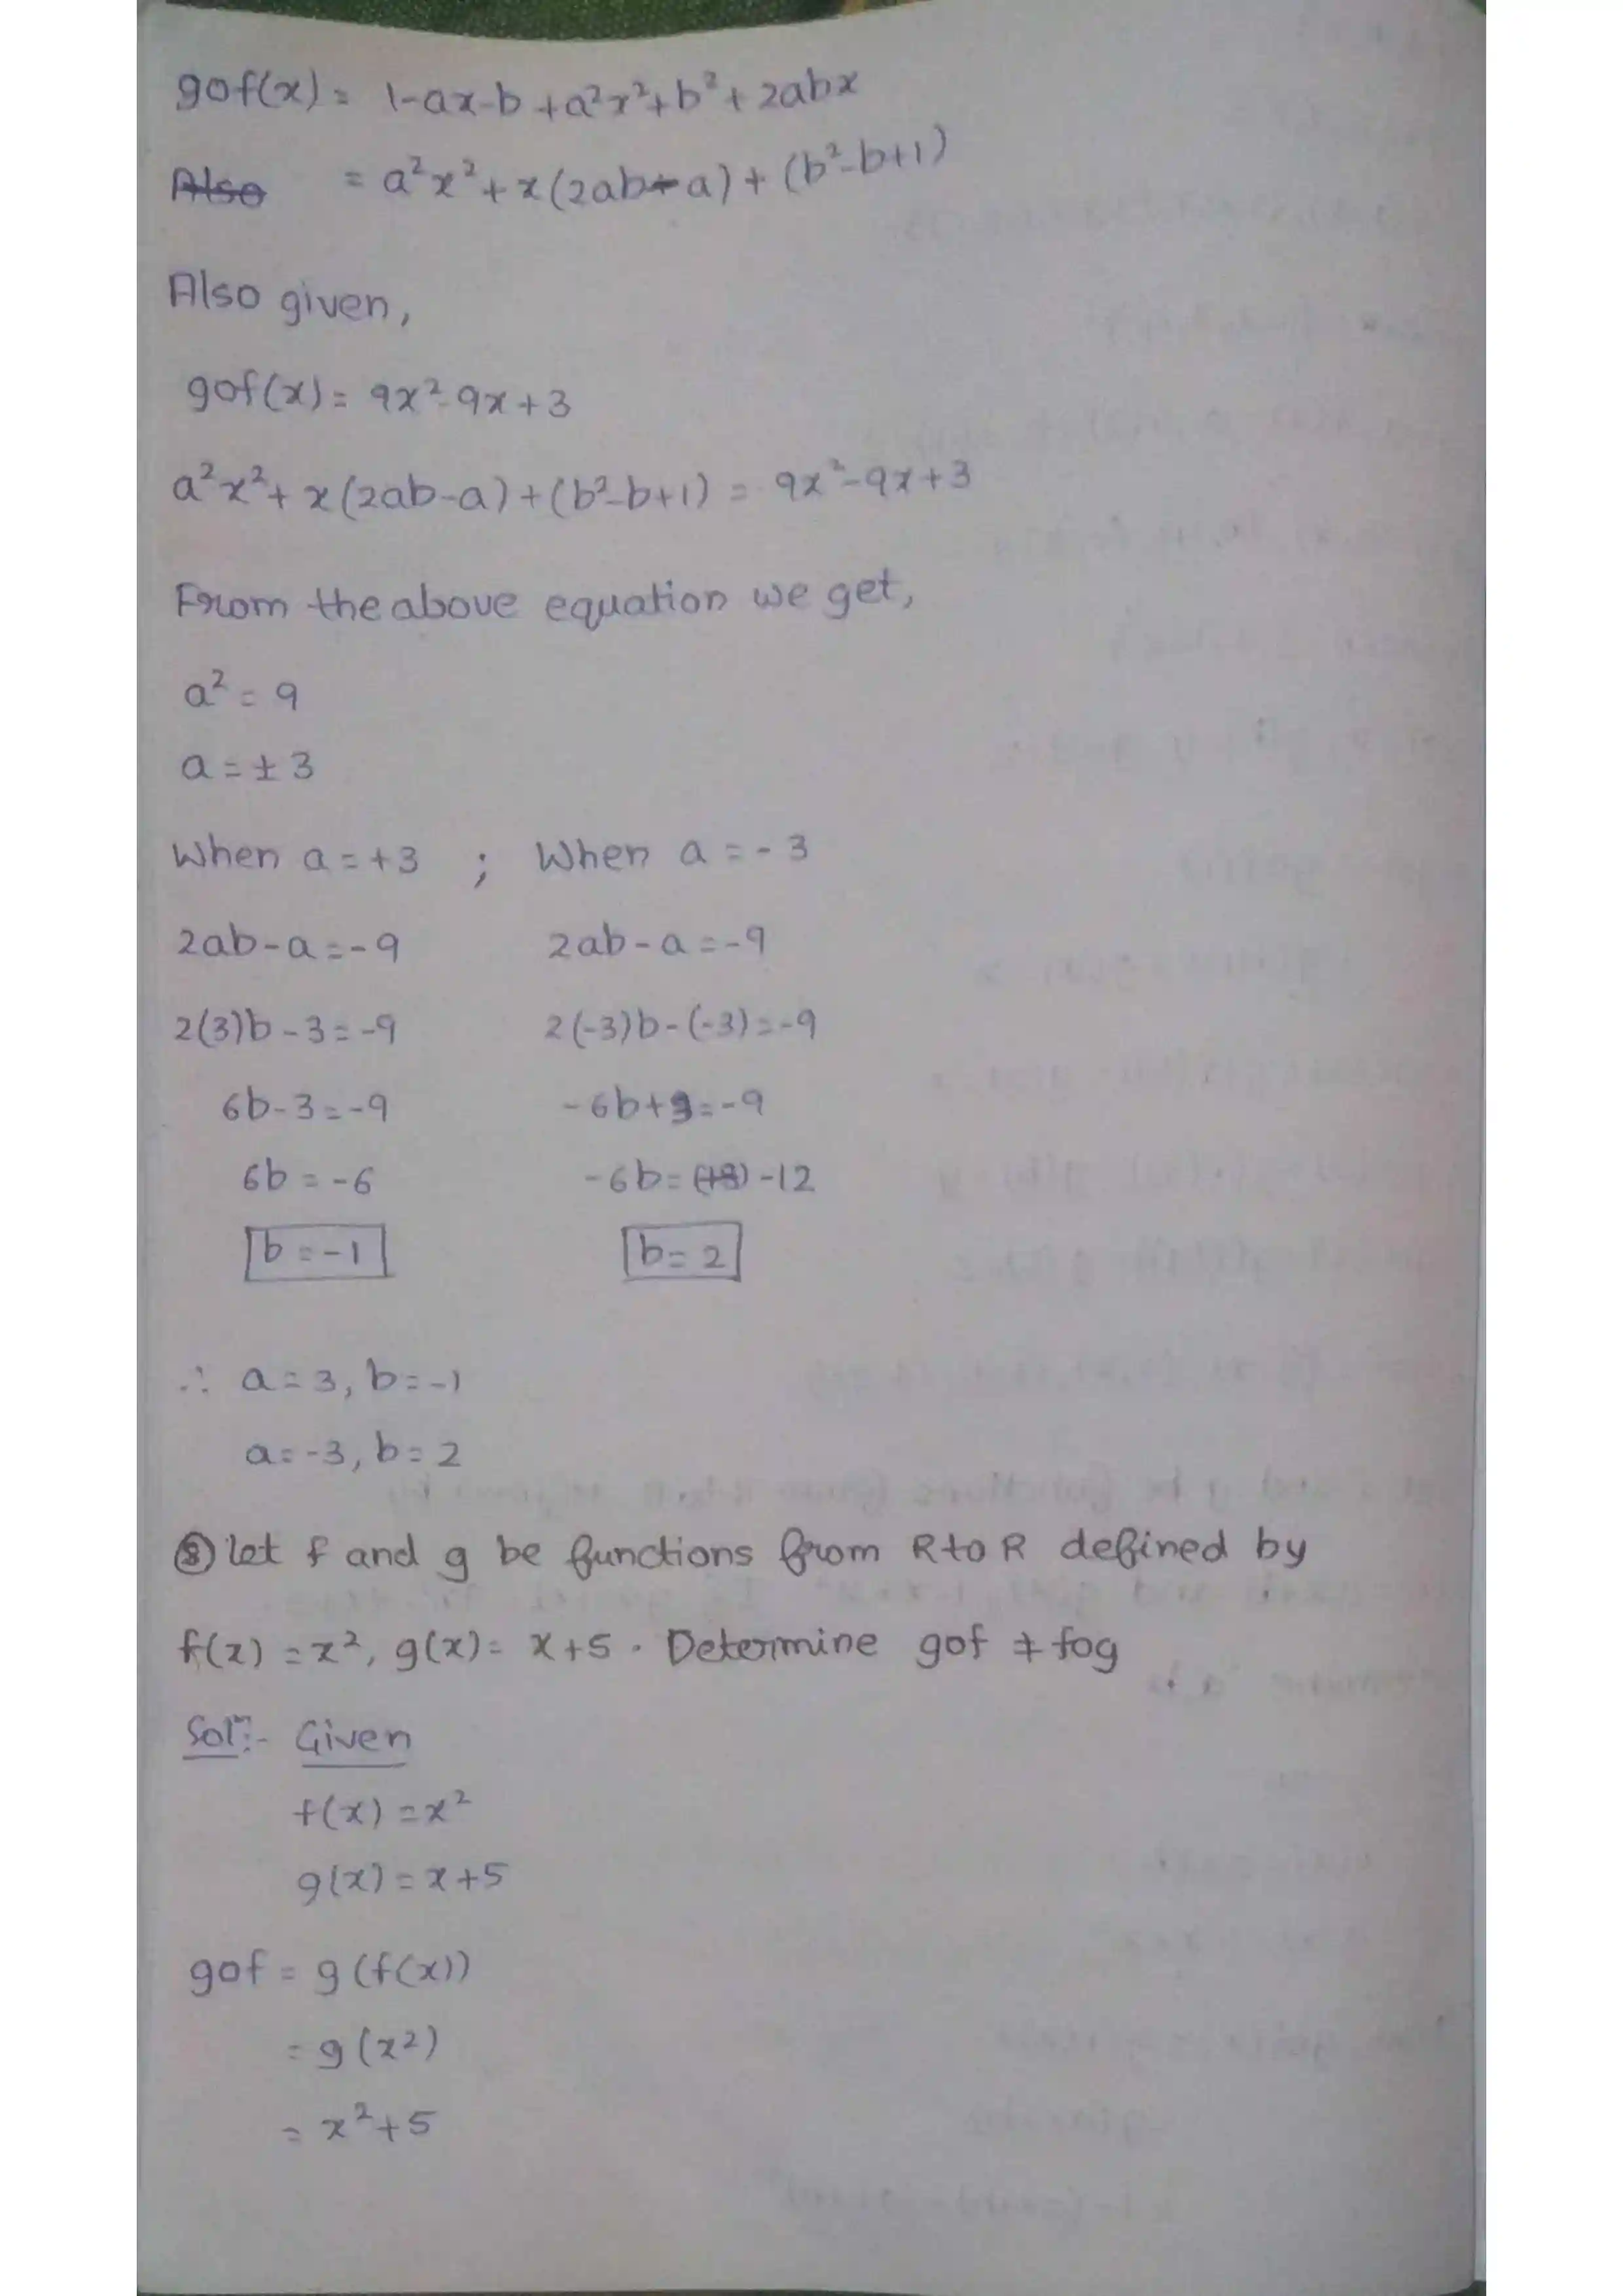 gof(x) = 1-ax-b+a²x²+b²+2abx
Also = a²x²+x(2ab-a)+(b²-b+1)
Also given,
gof(x) = 9x²-9x+3
a²x²+x(2ab-a)+(b²-b+1) = 9x²-9x+3
From the above equation we get,
a² = 9
a = ±3
When a = +3 ; When a = -3
2ab-a = -9 2ab-a = -9
2(3)b-3 = -9 2(-3)b-(-3) = -9
6b-3 = -9 -6b+3 = -9
6b = -6 -6b = -12
b = -1 b = 2
∴ a = 3, b = -1
a = -3, b = 2
⑧ let f and g be functions from R to R defined by
f(x) = x², g(x) = x+5. Determine gof ≠ fog
Solⁿ:- Given
f(x) = x²
g(x) = x+5
gof = g(f(x))
= g(x²)
= x²+5